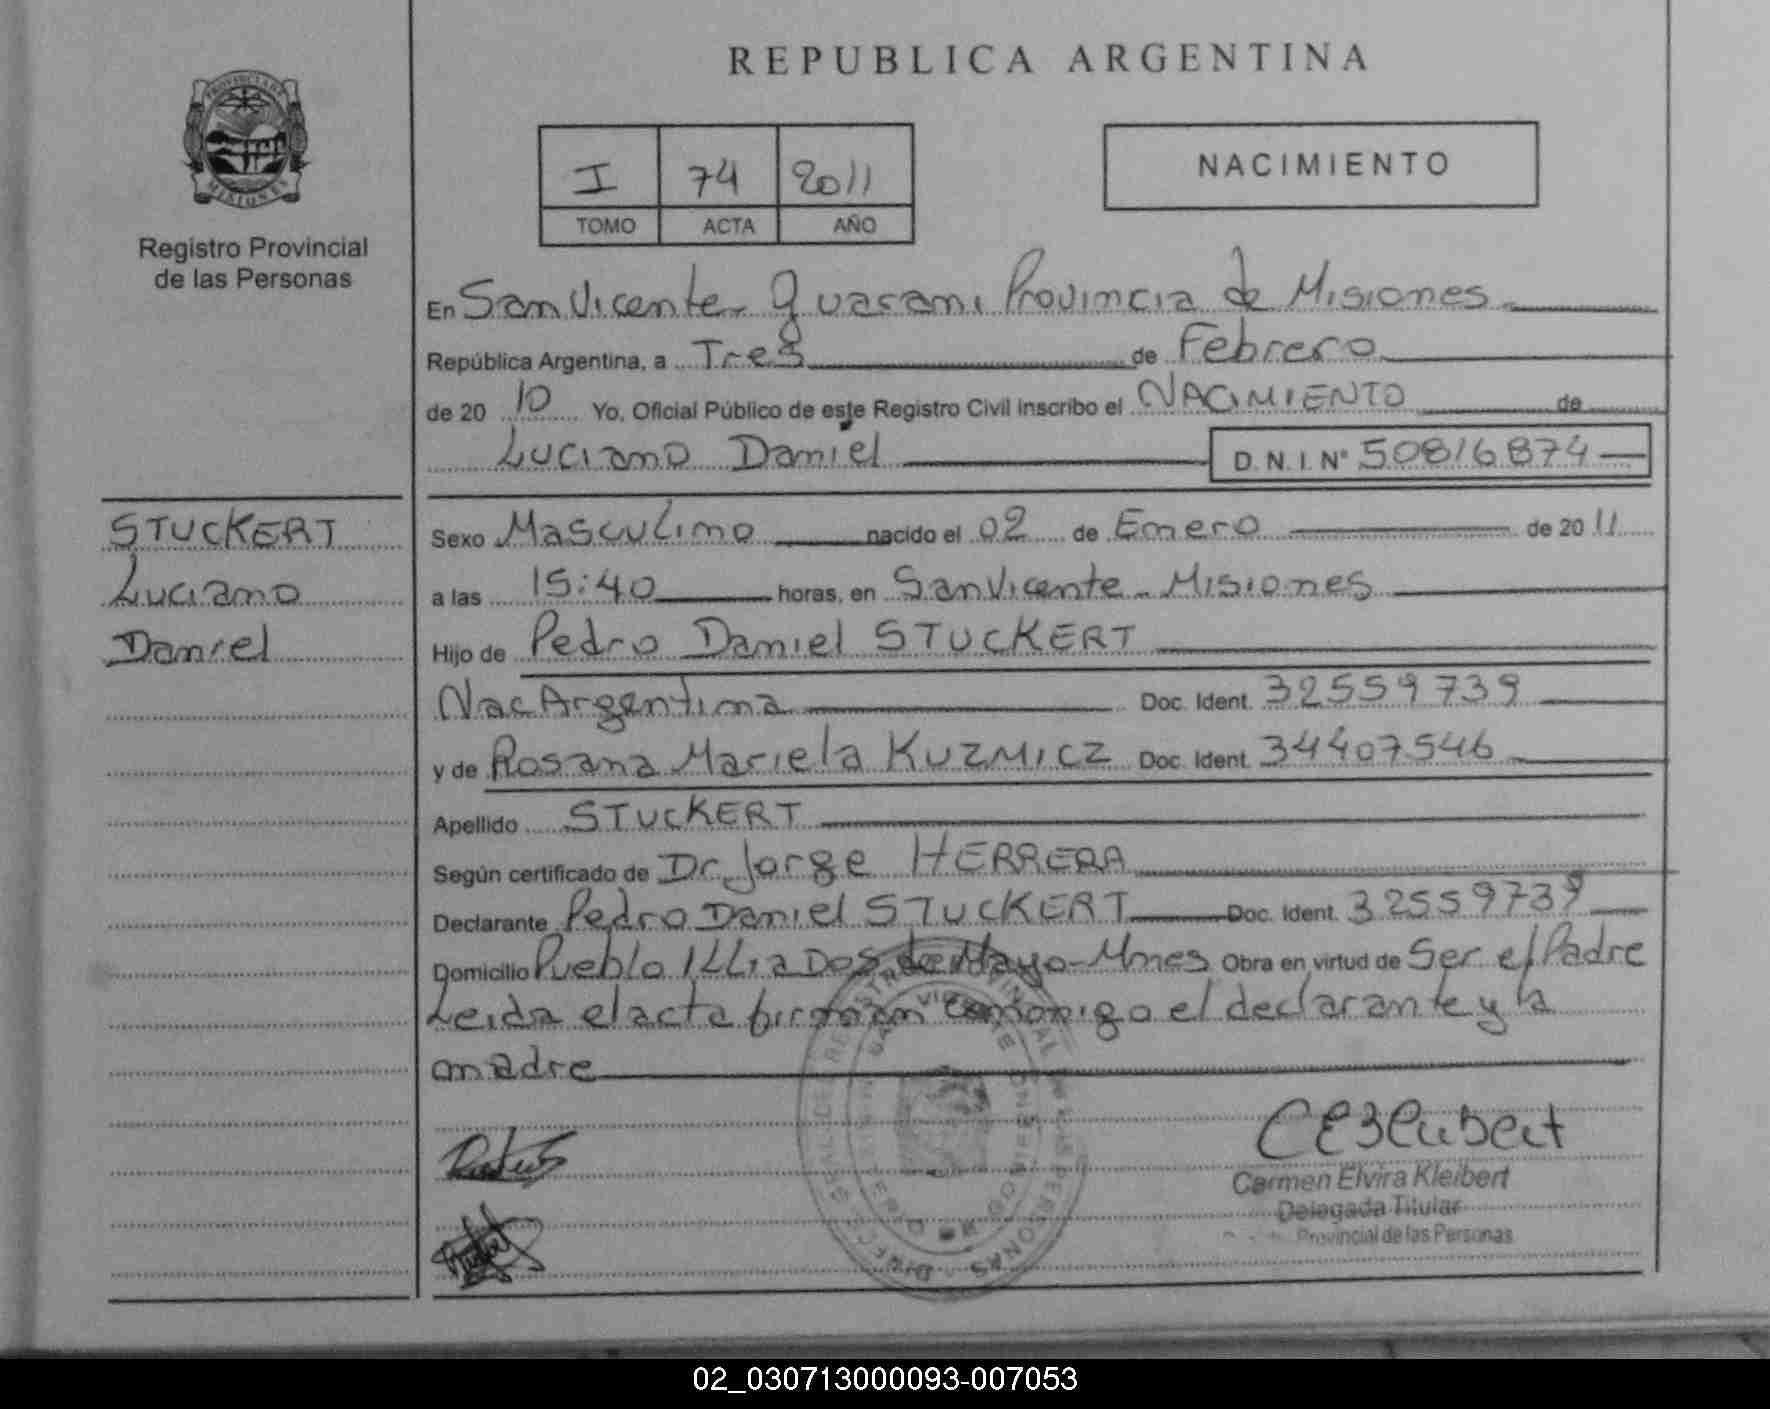 REPUBLICA ARGENTINA
PROVINCIA DE MISIONES
Registro Provincial
de las Personas
I 74 2011
TOMO ACTA AÑO
NACIMIENTO
En San Vicente - Guarani Provincia de Misiones
República Argentina, a Tres de Febrero
de 20 10 Yo, Oficial Público de este Registro Civil inscribo el NACIMIENTO de
Luciano Daniel D.N.I. Nº 50816874
STUCKERT
Luciano
Daniel
Sexo Masculino nacido el 02 de Enero de 20 11
a las 15:40 horas, en San Vicente - Misiones
Hijo de Pedro Daniel STUCKERT
Nac Argentina Doc. Ident. 32559739
y de Rosana Mariela KUZMICZ Doc. Ident. 34407546
Apellido STUCKERT
Según certificado de Dr. Jorge HERRERA
Declarante Pedro Daniel STUCKERT Doc. Ident. 32559739
Domicilio Pueblo ILLia Dos de Mayo - Mnes Obra en virtud de Ser el Padre
Leida el acta firman conmigo el declarante y la
madre
Carmen Elvira Kleibert
Delegada Titular
Provincial de las Personas
02_030713000093-007053